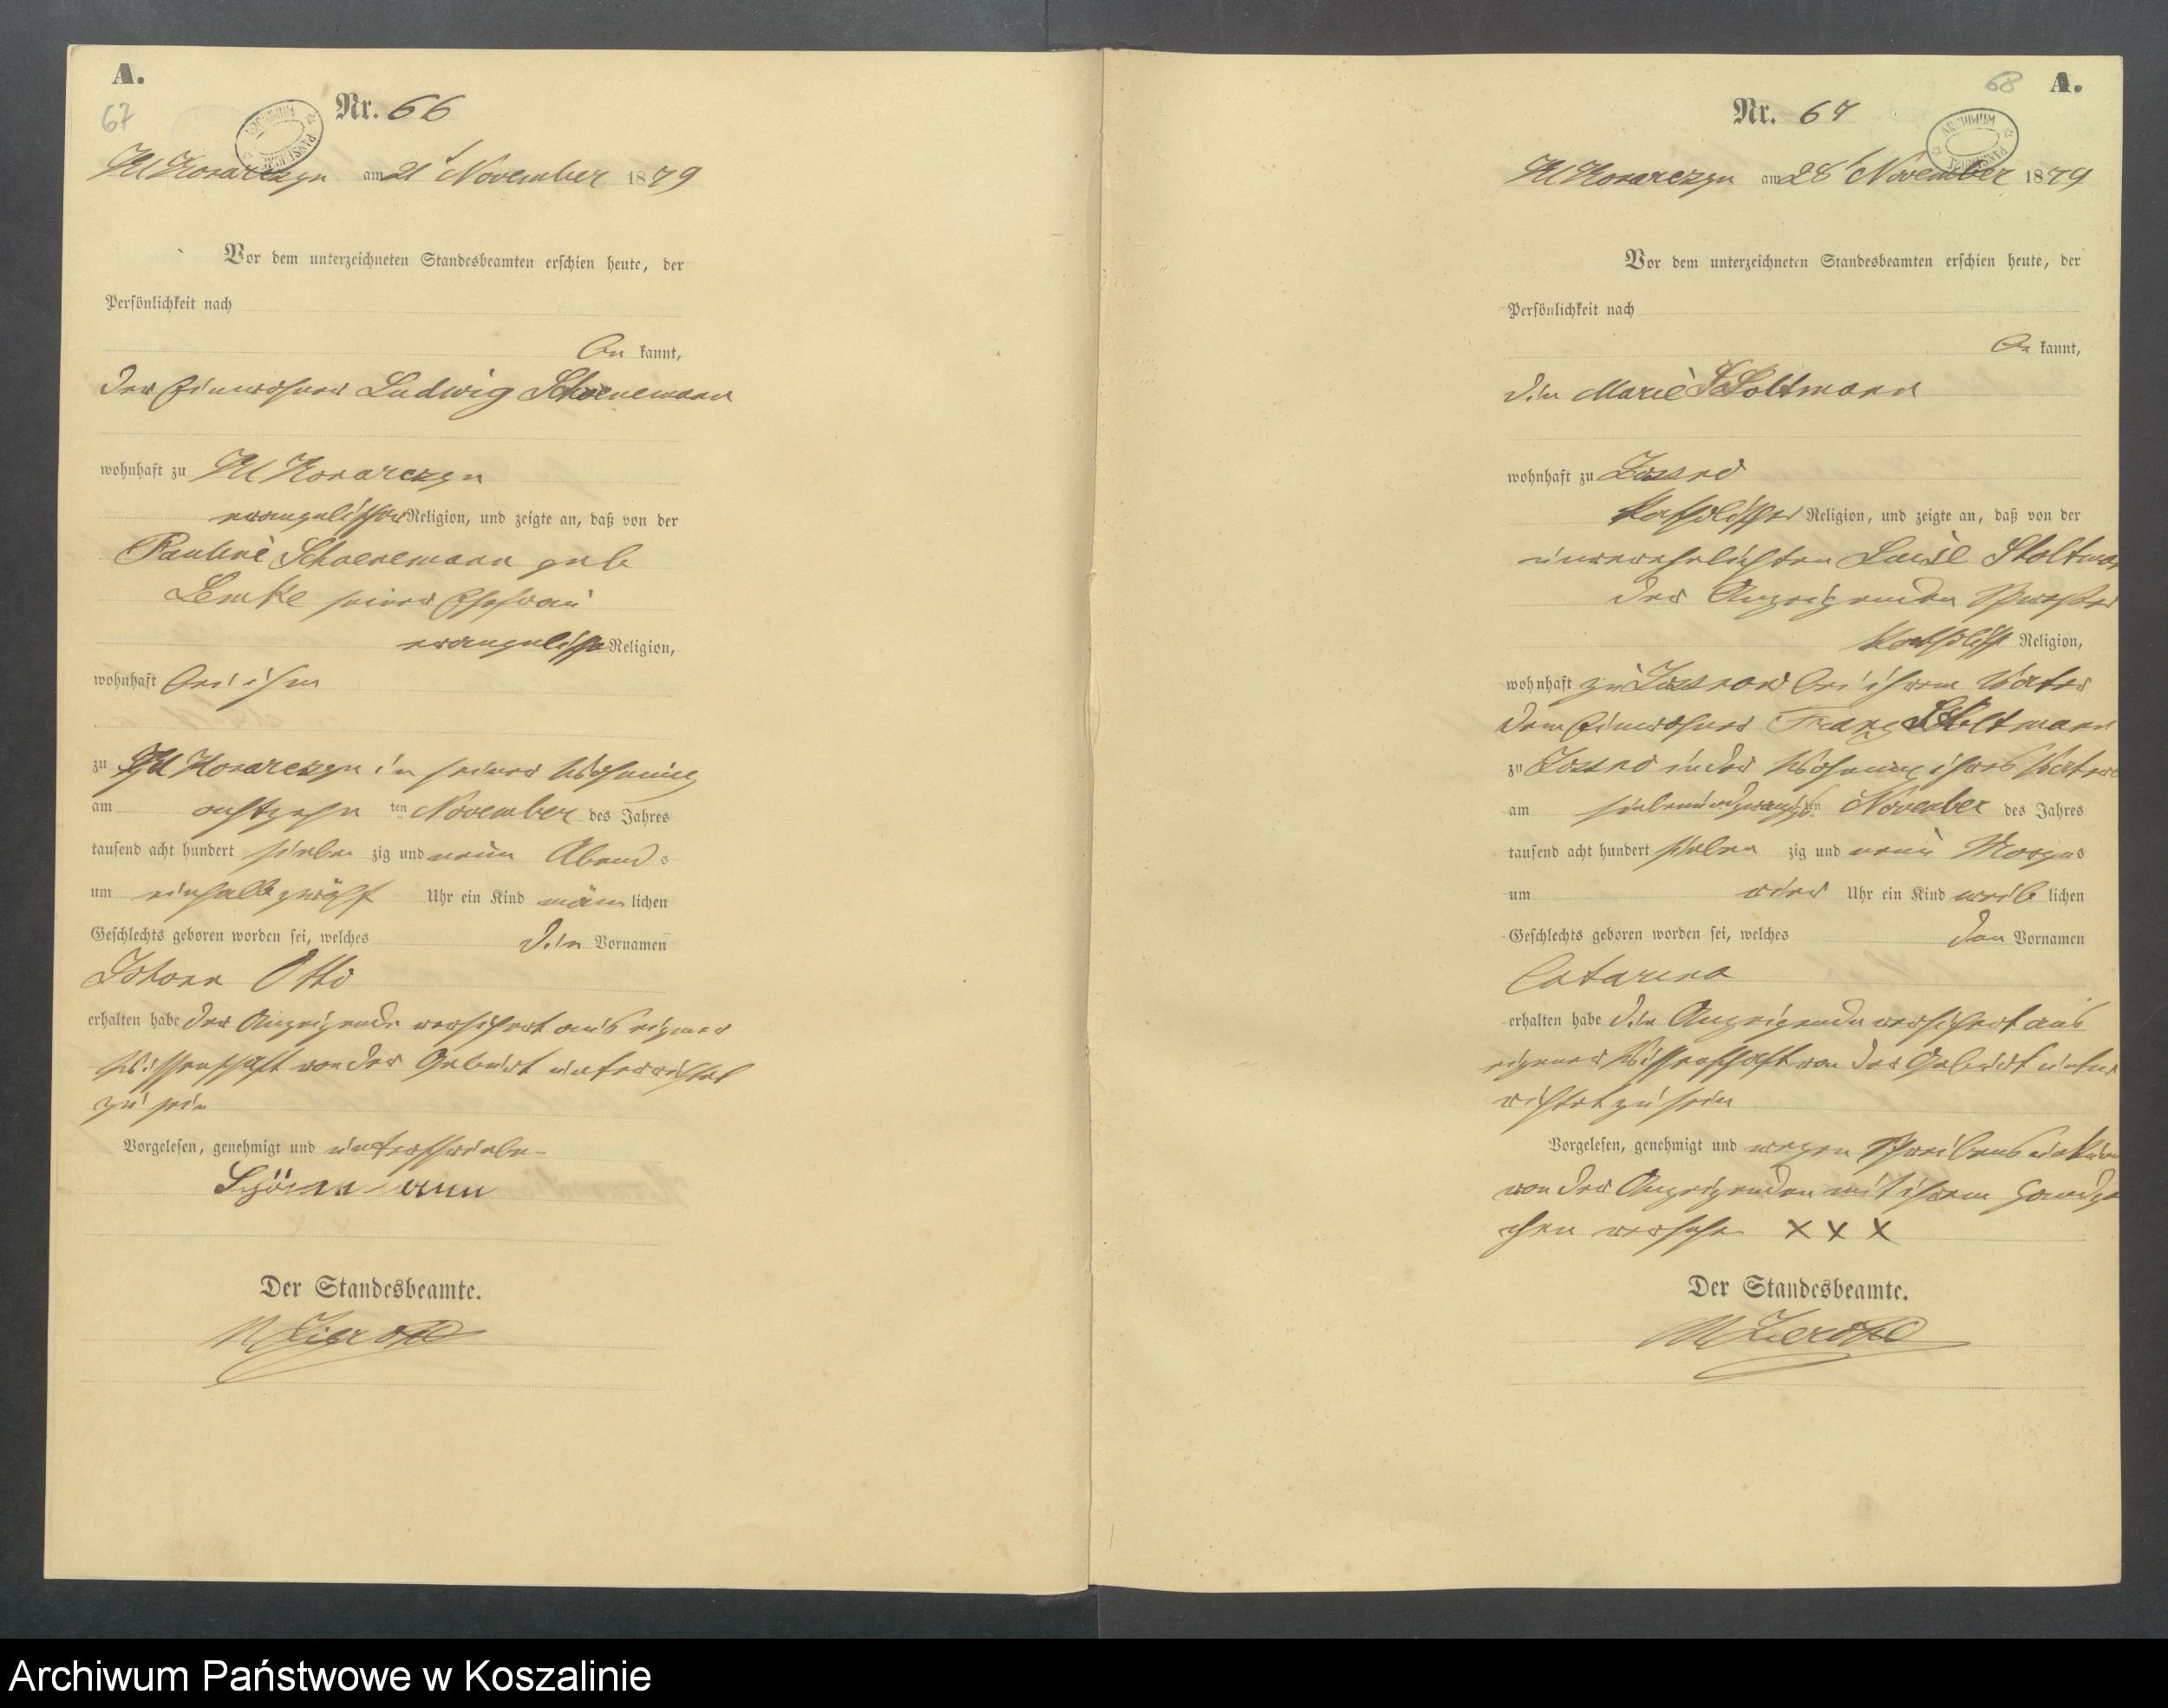 A.
67
Nr. 66
Kl Konarczyn am 21 November 1879
Vor dem unterzeichneten Standesbeamten erschien heute, der
Persönlichkeit nach
be kannt,
der Einwohner Ludwig Schoenemann
wohnhaft zu Kl Konarczyn
evangelischer Religion, und zeigte an, daß von der
Pauline Schoenemann geb
Lemke seiner Ehefrau
evangelischer Religion,
wohnhaft bei ihm
zu Kl Konarczyn in seiner Wohnung
am achtzehn ten November des Jahres
tausend acht hundert sieben zig und neun Abend s
um einhalb zwölf Uhr ein Kind männ lichen
Geschlechts geboren worden sei, welches die Vornamen
Johann Otto
erhalten habe der Anzeigende versichert aus eigener
Wissenschaft von der Geburt unterrichtet
zu sein
Vorgelesen, genehmigt und unterschrieben
Schönemann
Der Standesbeamte.
68 A.
Nr. 67
Kl Konarczyn am 28 November 1879
Vor dem unterzeichneten Standesbeamten erschien heute, der
Persönlichkeit nach
be kannt,
die Marie Stoltmann
wohnhaft zu
katholischer Religion, und zeigte an, daß von der
unverehelichten Luise Stoltman
der Anzeigenden Schwester
katholisch Religion,
wohnhaft zu bei ihrem Vater
dem Einwohner Franz Stoltmann
zu in der Wohnung ihres Vaters
am siebenundzwanzigsten November des Jahres
tausend acht hundert sieben zig und neun Morgens
um vier Uhr ein Kind weib lichen
Geschlechts geboren worden sei, welches den Vornamen
Catarina
erhalten habe die Anzeigende versichert aus
eigener Wissenschaft von der Geburt unter
richtet zu sein
Vorgelesen, genehmigt und wegen Schreibens unkund
von der Anzeigenden mit ihrem Handzei
chen versehen X X X
Der Standesbeamte.
Archiwum Państwowe w Koszalinie